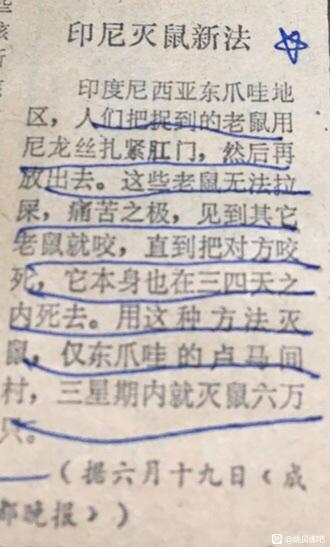 印尼灭鼠新法
印度尼西亚东爪哇地
区，人们把捉到的老鼠用
尼龙丝扎紧肛门，然后再
放出去。这些老鼠无法拉
屎，痛苦之极，见到其它
老鼠就咬，直到把对方咬
死，它本身也在三四天之
内死去。用这种方法灭
鼠，仅东爪哇的卢马间
村，三星期内就灭鼠六万
只。
（据六月十九日《成
都晚报》）